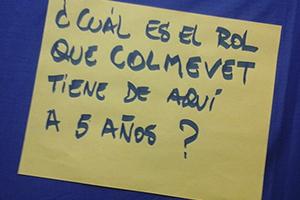 ¿CUÁL ES EL ROL
QUE COLMEVET
TIENE DE AQUÍ
A 5 AÑOS?